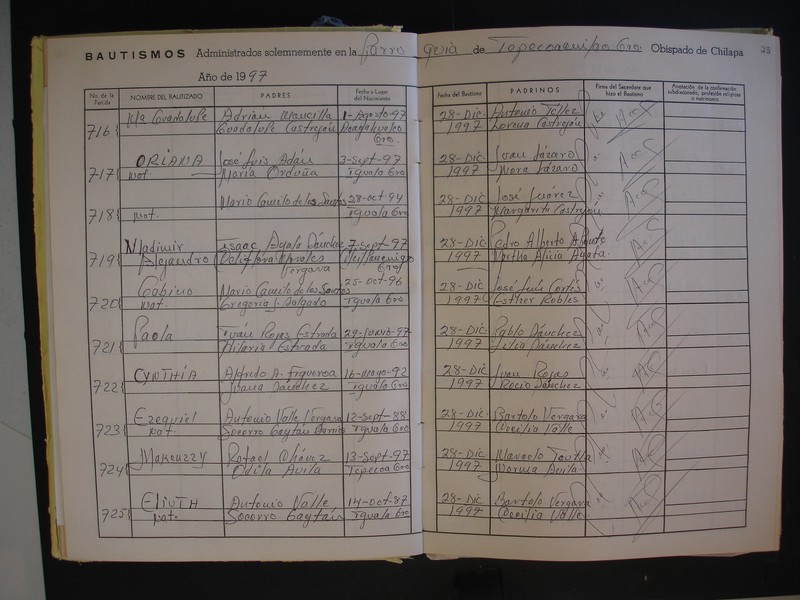 BAUTISMOS Administrados solemnemente en la Parroquia de Tepecoacuilco Gro. Obispado de Chilapa 25
Año de 1997
No. de la Partida NOMBRE DEL BAUTIZADO PADRES Fecha y Lugar del Nacimiento Fecha del Bautismo PADRINOS Firma del Sacerdote que hizo el Bautismo Anotación de la confirmación subdiaconado, profesión religiosa o matrimonio
Ma Guadalupe Adrian Mancilla 1-Agosto-97 28-Dic Antonio Téllez
716 Guadalupe Castrejón 1997 Lorena Castrejón
Gro.
ORIANA José Luis Adán 3-Sept-97 28-Dic Juan Lázaro
717 nat. María Orduña Iguala Gro 1997 Nora Lázaro
Mario Camilo de los Santos 28-oct-94 28-Dic José Juárez
718 nat. Iguala Gro 1997 Margarita Castrejón
Vladimir Isaac Ayala Sánchez 7-sept-97 28-Dic Pedro Alberto
719 Alejandro Morales 1997 Martha Alicia Ayala
Vergara Gro
Gabino Mario Camilo de los Santos 25-oct-96 28-Dic José Luis Cortés
720 nat. Gregoria S. Salgado Iguala Gro 1997 Esther Robles
Paola Iván Rojas Estrada 29-Junio-97 28-Dic Pablo Sánchez
721 Hilaria Estrada Iguala Gro 1997 Lilia Sánchez
CYNTHIA Alfredo A. Figueroa 16-mayo-92 28-Dic Juan Rojas
722 Juana Sánchez Iguala Gro 1997 Rocio Sánchez
Ezequiel Antonio Valle Vergara 12-sept-88 28-Dic Bartolo Vergara
723 nat. Socorro Gaytán Iguala Gro 1997 Cecilia Valle
Makeuzzy Rafael Chávez 13-Sept-97 28-Dic Marcelo
724 Odila Avila Tepecoa Gro 1997 Norma Avila
ELIUTH Antonio Valle 14-Oct-87 28-Dic Bartolo Vergara
725 nat. Socorro Gaytán Iguala Gro 1997 Cecilia Valle